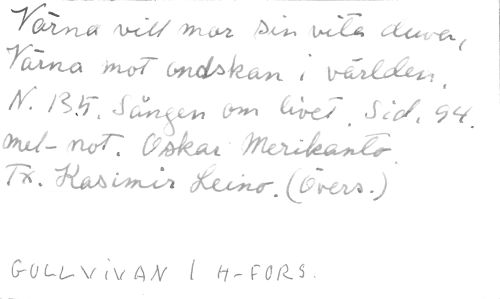 Värna vill mor sin vita duva,
Värna mot ondskan i världen.
N. 135. Sången om livet. Sid. 94.
mel-not. Oskar Merikanto.
Tx. Kasimir Leino. (Övers.)
GULLVIVAN I H-FORS.